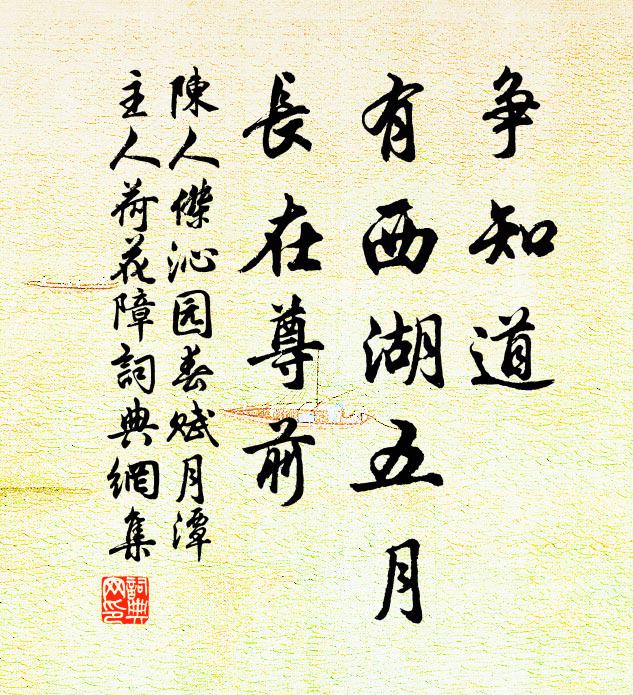 争知道
有西湖五月
長在尊前
陳人傑沁园春赋月潭
主人荷花障詞典網集
詞典
网印